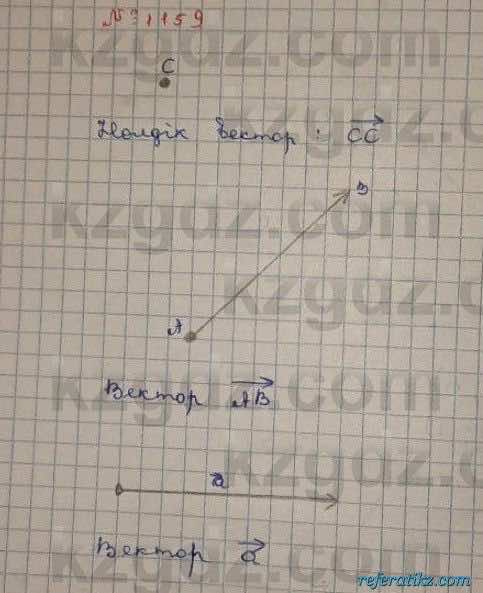 № 1159
C
Нөлдік вектор : CC
B
A
Вектор AB
a
Вектор a
kzgdz.com
referatikz.com